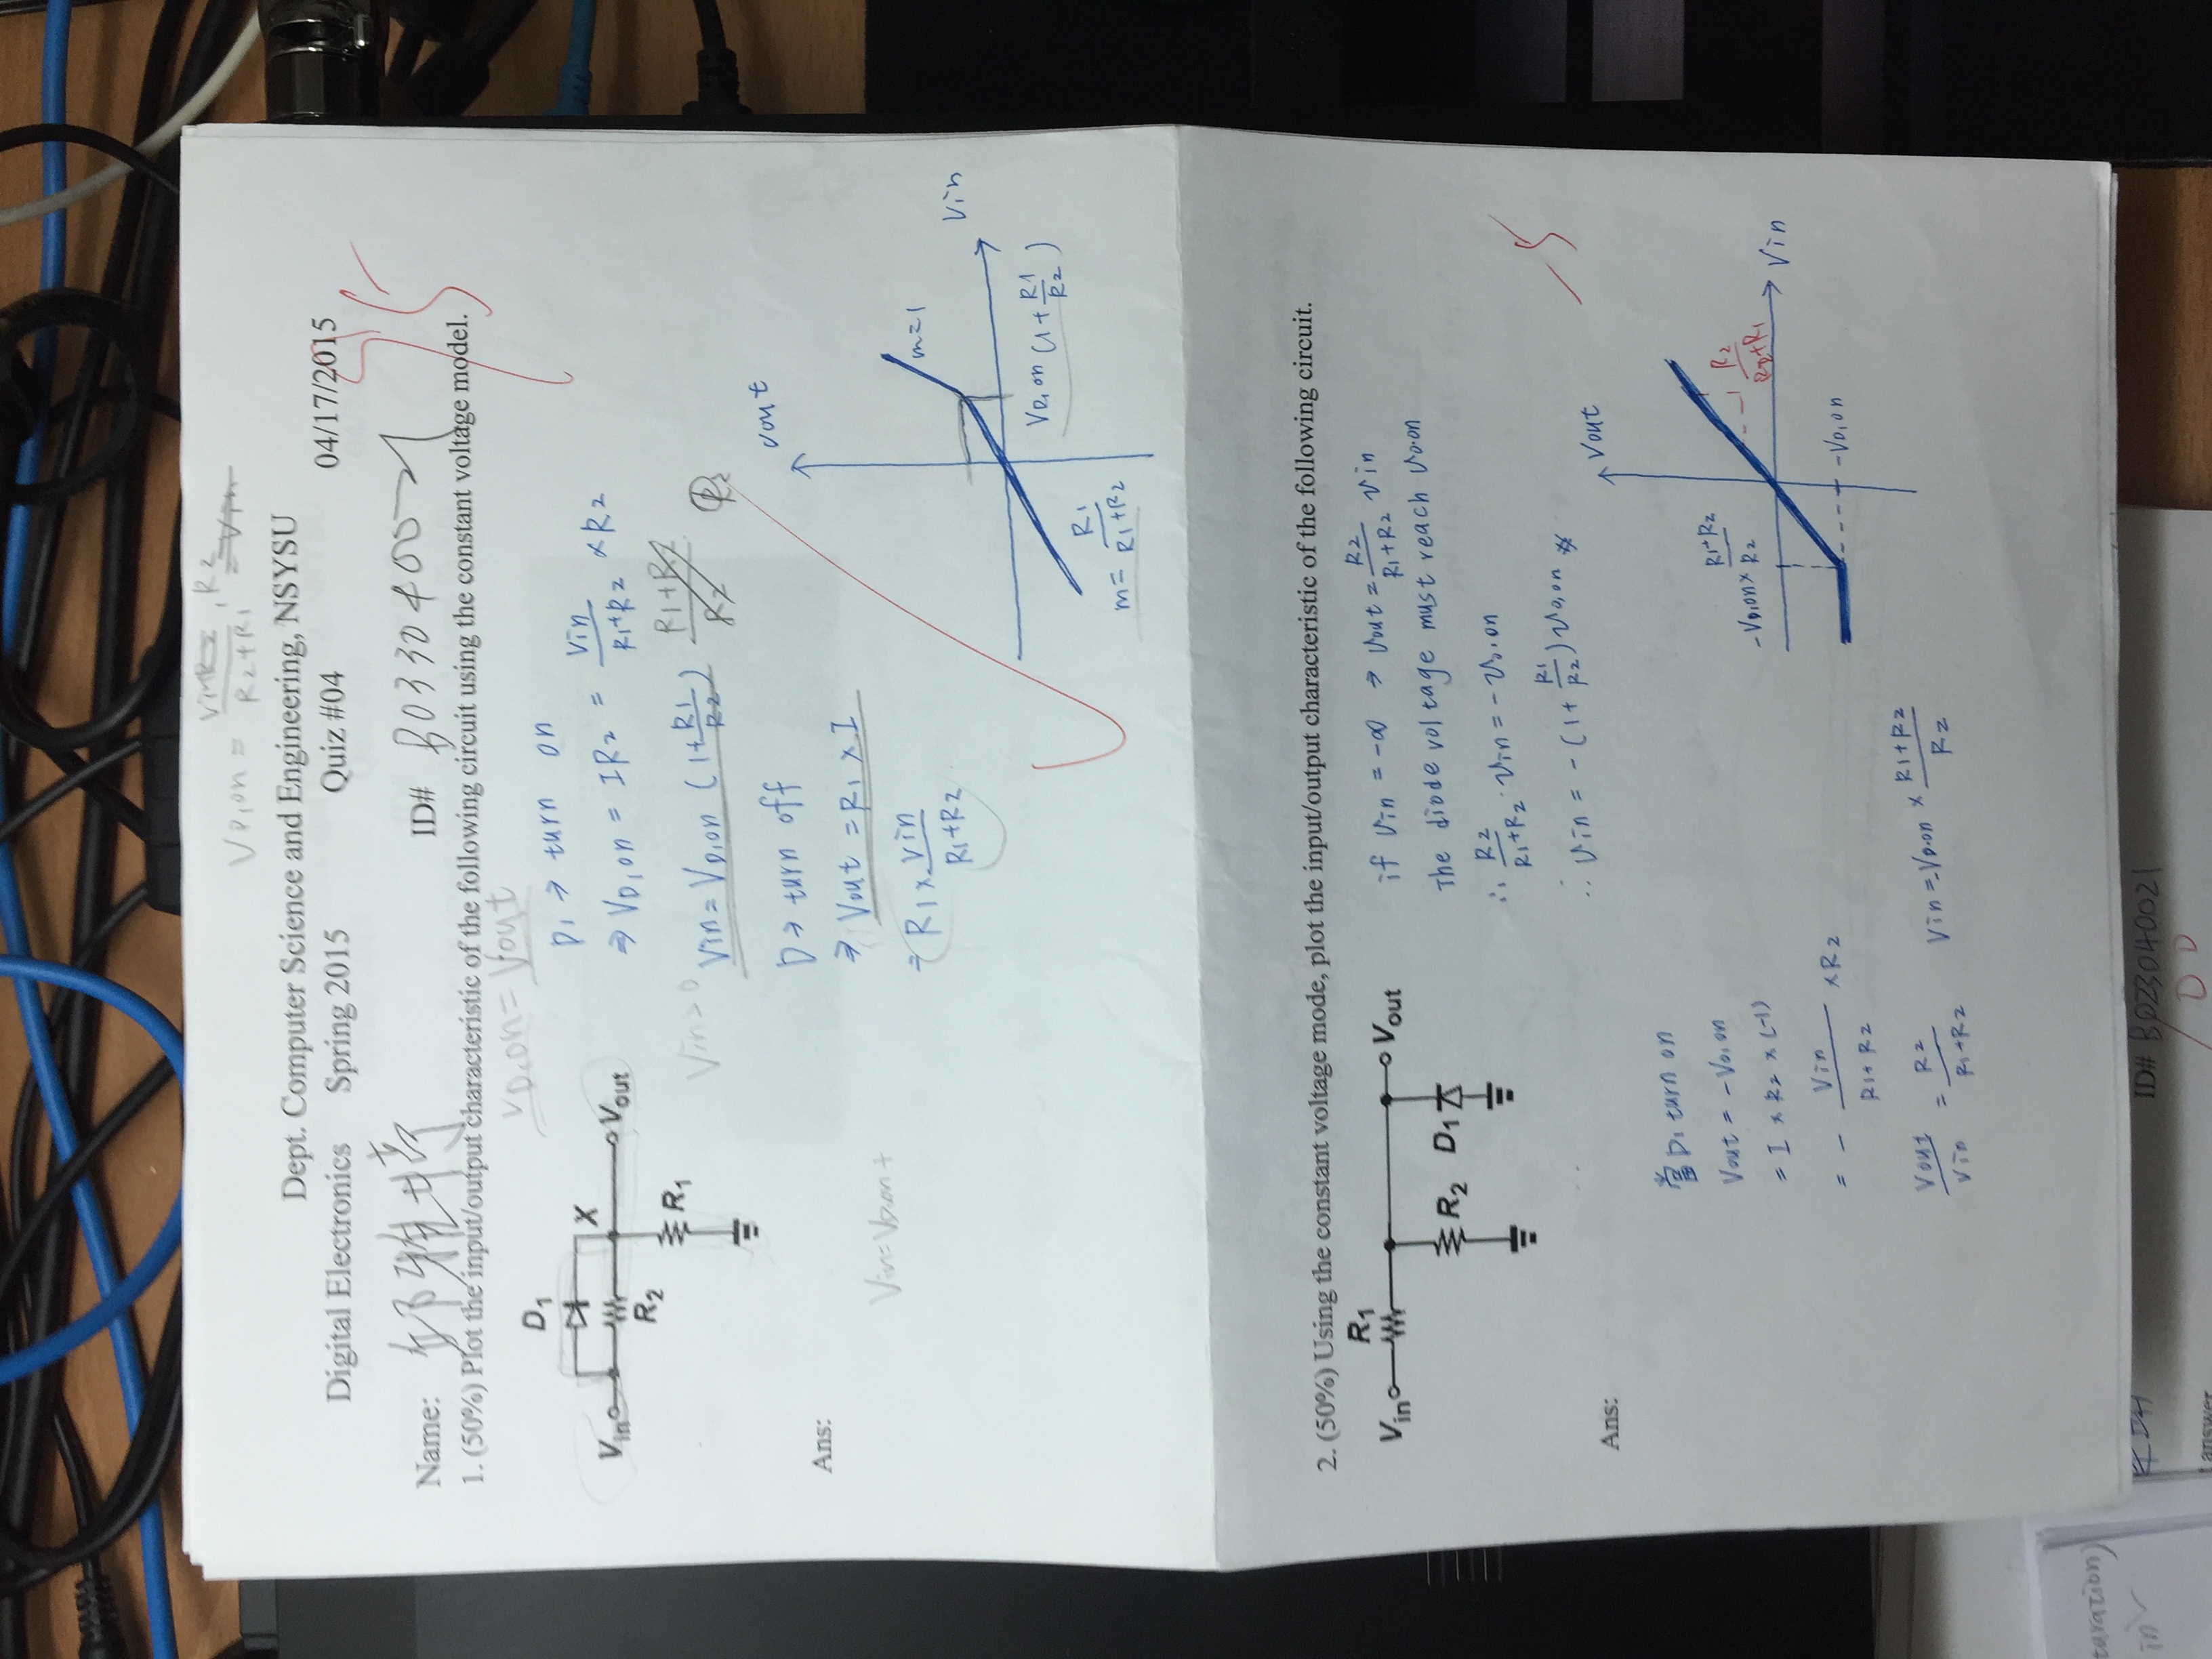 V_D,on = VinR2 / R2+R1 , R2 = Vin
Dept. Computer Science and Engineering, NSYSU
Digital Electronics Spring 2015 Quiz #04 04/17/2015
95
Name: ID# B033040021
1. (50%) Plot the input/output characteristic of the following circuit using the constant voltage model.
V_D,on = Vout
D1
X
Vin
Vout
R2
R1
D1 → turn on
⇒ V_D,on = IR2 = Vin / R1+R2 × R2
Vin > 0
Vin = V_D,on (1 + R1/R2) R1+R2 / R2
R2
D → turn off
⇒ Vout = R1 × I
= R1 × Vin / R1+R2
Ans:
Vin = V_D,on +
Vout
m=1
Vin
V_D,on (1 + R1/R2)
m = R1 / R1+R2
2. (50%) Using the constant voltage mode, plot the input/output characteristic of the following circuit.
R1
Vin
Vout
R2
D1
if Vin = -∞ → Vout = R2 / R1+R2 Vin
The diode voltage must reach V_D,on
∴ R2 / R1+R2 · Vin = - V_D,on
∴ Vin = -(1 + R1/R2) V_D,on #
-5
Ans:
當 D1 turn on
Vout = -V_D,on
= I × R2 × (-1)
= - Vin / R1+R2 × R2
Vout / Vin = R2 / R1+R2 Vin = -V_D,on × R1+R2 / R2
Vout
-V_D,on × R1+R2 / R2
R2 / R2+R1
Vin
-V_D,on
turation)
in
ID# B023040021
t answer